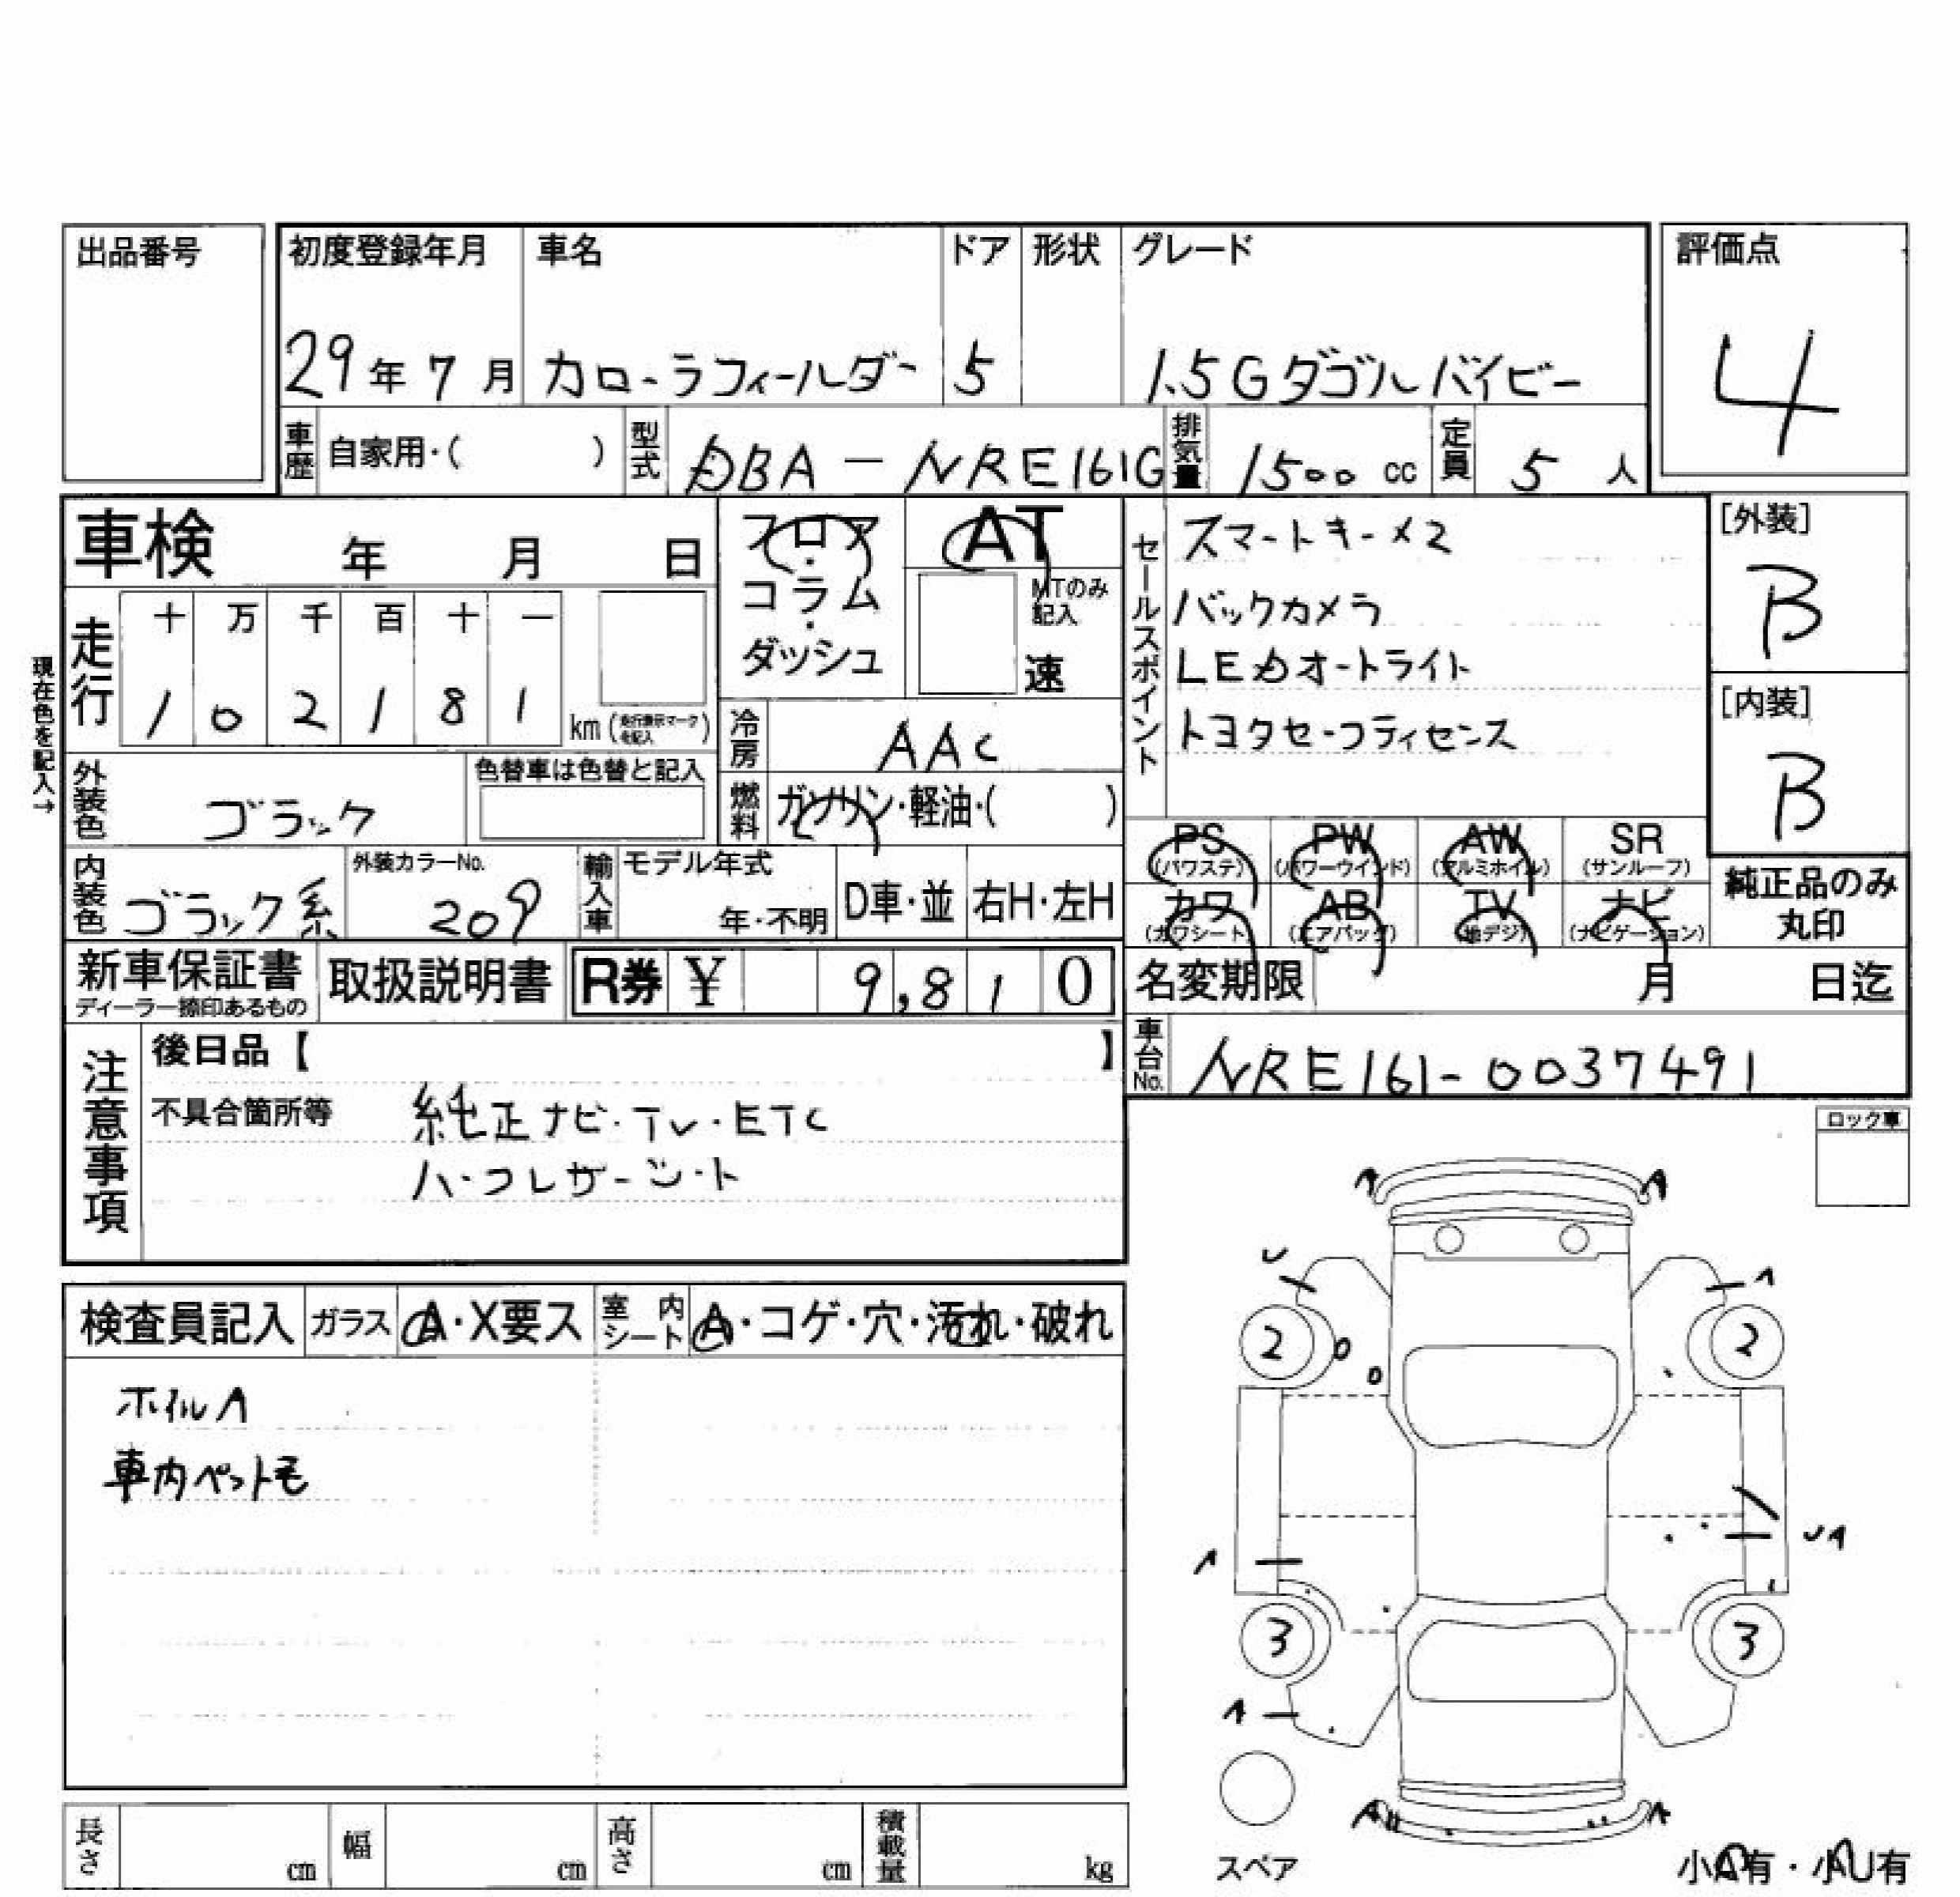 出品番号
初度登録年月 車名 ドア 形状 グレード 評価点
29年7月 カローラフィールダー 5 1.5Gダブルバイビー 4
車歴 自家用・( ) 型式 DBA-NRE161G 排気量 1500cc 定員 5人
車検 年 月 日
フロア・コラム・ダッシュ
AT
MTのみ記入
速
セールスポイント
スマートキー×2
バックカメラ
LEDオートライト
トヨタセーフティセンス
[外装]
B
[内装]
B
現在色を記入→
走行 十 万 千 百 十 一
1 0 2 1 8 1 km(走行表示マークを記入)
冷房 AAC
外装色 ブラック 色替車は色替と記入
燃料 ガソリン・軽油・( )
内装色 ブラック系 外装カラーNo. 209 輸入車 モデル年式 年・不明 D車・並 右H・左H
PS(パワステ) PW(パワーウインド) AW(アルミホイル) SR(サンルーフ)
カワ(カワシート) AB(エアバッグ) TV(地デジ) ナビ(ナビゲーション)
純正品のみ丸印
新車保証書 ディーラー捺印あるもの 取扱説明書 R券 ¥ 9,810
名変期限 月 日迄
車台No. NRE161-0037491
注意事項
後日品【 】
不具合箇所等 純正ナビ・TV・ETC
ハーフレザーシート
ロック車
検査員記入 ガラス A・X要ス 室内シート A・コゲ・穴・汚れ・破れ
ホイルA
車内ペット毛
A A
U A
2 2
A UA
3 3
A
A A
スペア
小A有・小U有
長さ cm 幅 cm 高さ cm 積載量 kg